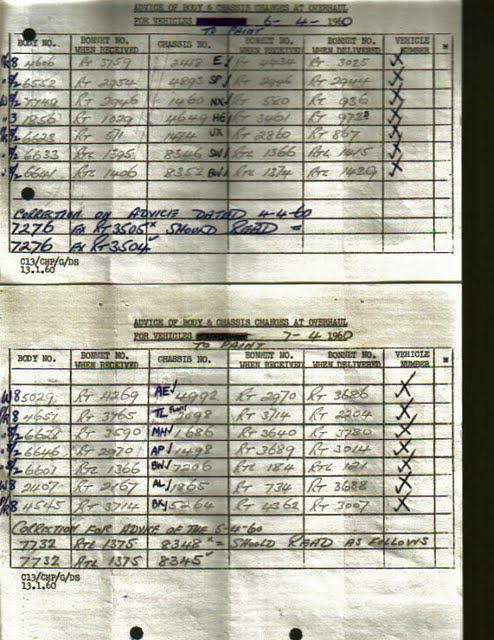 ADVICE OF BODY & CHASSIS CHANGES AT OVERHAUL
FOR VEHICLES 6-4-1960
TO PAINT
BODY NO. BONNET NO. WHEN RECEIVED CHASSIS NO. BONNET NO. WHEN RECEIVED BONNET NO. WHEN DELIVERED VEHICLE NUMBER
4606 RT 3759 2418 E RT 4434 RT 3025
6552 RT 2954 4893 SP RT 2946 RT 2944
7749 RT 2946 1460 NX RT 580 RT 936
1856 RT 1029 4649 HG RT 3401 RT 973
6623 RT 511 1474 UX RT 2860 RT 867
6633 RTL 1395 8346 SW RTL 1366 RTL 1415
6641 RTL 1406 8352 BW RTL 1374 RTL 1429
CORRECTION ON ADVICE DATED 4-4-60
7276 EX RT 3505 x SHOULD READ =
7276 EX RT 3504
C13/CHP/G/DS
13.1.60
ADVICE OF BODY & CHASSIS CHANGES AT OVERHAUL
FOR VEHICLES 7-4-1960
TO PAINT
BODY NO. BONNET NO. WHEN RECEIVED CHASSIS NO. BONNET NO. WHEN RECEIVED BONNET NO. WHEN DELIVERED VEHICLE NUMBER
W8 5029 RT 4269 AE 4992 RT 2970 RT 3686
4651 RT 3965 TL 3098 RT 3714 RT 2204
6628 RT 3590 MH 1686 RT 3640 RT 3780
6646 RT 2970 AP 1498 RT 3689 RT 3014
6601 RTL 1366 BW 7206 RTL 184 RTL 121
W8 2407 RT 2167 AL 1865 RT 734 RT 3688
4545 RT 3714 BK 5264 RT 4362 RT 3007
CORRECTION FOR ADVICE OF THE 5-4-60
7732 RTL 1375 8348 x = SHOULD READ AS FOLLOWS
7732 RTL 1375 8345
C13/CHP/G/DS
13.1.60